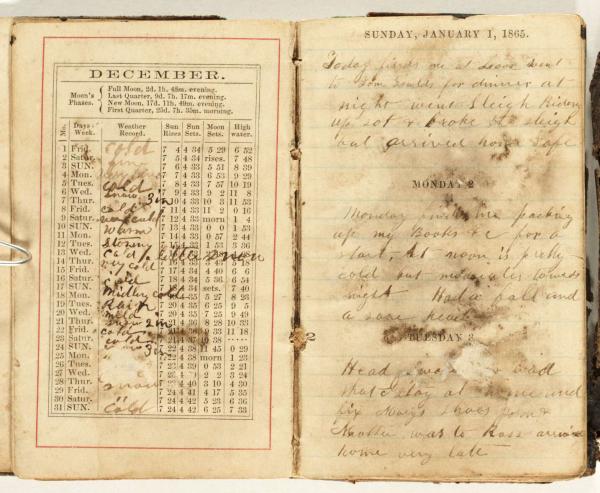 DECEMBER.
Moon's Phases.
Full Moon, 2d. 1h. 48m. evening.
Last Quarter, 9d. 7h. 17m. evening.
New Moon, 17d. 11h. 49m. evening.
First Quarter, 25d. 7h. 35m. morning.
Mo. Days Week. Weather Record. Sun Rises. Sun Sets. Moon Sets. High water.
1 Frid. cold 7 4 4 34 5 29 6 52
2 Satur. 7 5 4 34 rises. 7 48
3 SUN. 7 6 4 33 5 51 8 39
4 Mon. 7 7 4 33 6 53 9 29
5 Tues. cold 7 8 4 33 7 57 10 19
6 Wed. snow 7 9 4 33 9 2 11 8
7 Thur. 3 in 7 10 4 33 10 3 11 53
8 Frid. 7 11 4 33 11 2 0 16
9 Satur. 7 12 4 33 morn 1 4
10 SUN. warm 7 13 4 33 0 0 1 53
11 Mon. 7 14 4 33 0 57 2 44
12 Tues. Stormy 7 15 4 33 1 53 3 36
13 Wed. cold little snow
14 Thur. very cold 5 18
15 Frid. 7 17 4 34 4 40 6 6
16 Satur. cold 7 18 4 34 5 36 6 54
17 SUN. 4 34 sets. 7 40
18 Mon. cold 4 35 5 27 8 23
19 Tues. Rain 7 20 4 35 6 25 9 5
20 Wed. mild 7 20 4 35 7 25 9 49
21 Thur. snow 2 in 4 36 8 28 10 33
22 Frid. cold 9 33 11 18
23 Satur. cold
24 SUN. 3 in 7 22 4 38 11 45 0 29
25 Mon. 7 22 4 38 morn 1 23
26 Tues. 7 23 4 39 0 53 2 21
27 Wed. 3 24
28 Thur. snow 7 24 4 40 3 10 4 30
29 Frid. 7 24 4 41 4 17 5 35
30 Satur. 7 24 4 42 5 23 6 36
31 SUN. cold 7 24 4 42 6 25 7 33
SUNDAY, JANUARY 1, 1865.
Today finds me at went
to Tom for dinner at
night went Sleigh Riding
up sot & broke the sleigh
but arrived home safe
MONDAY 2
Monday finds me packing
up my Books &c for a
start, At noon is pretty
cold but towards
night Had a fall and
a sore head
TUESDAY 3
Head so bad
that I stay at home and
fix Marys shoes
Mother was to Ross
home very late